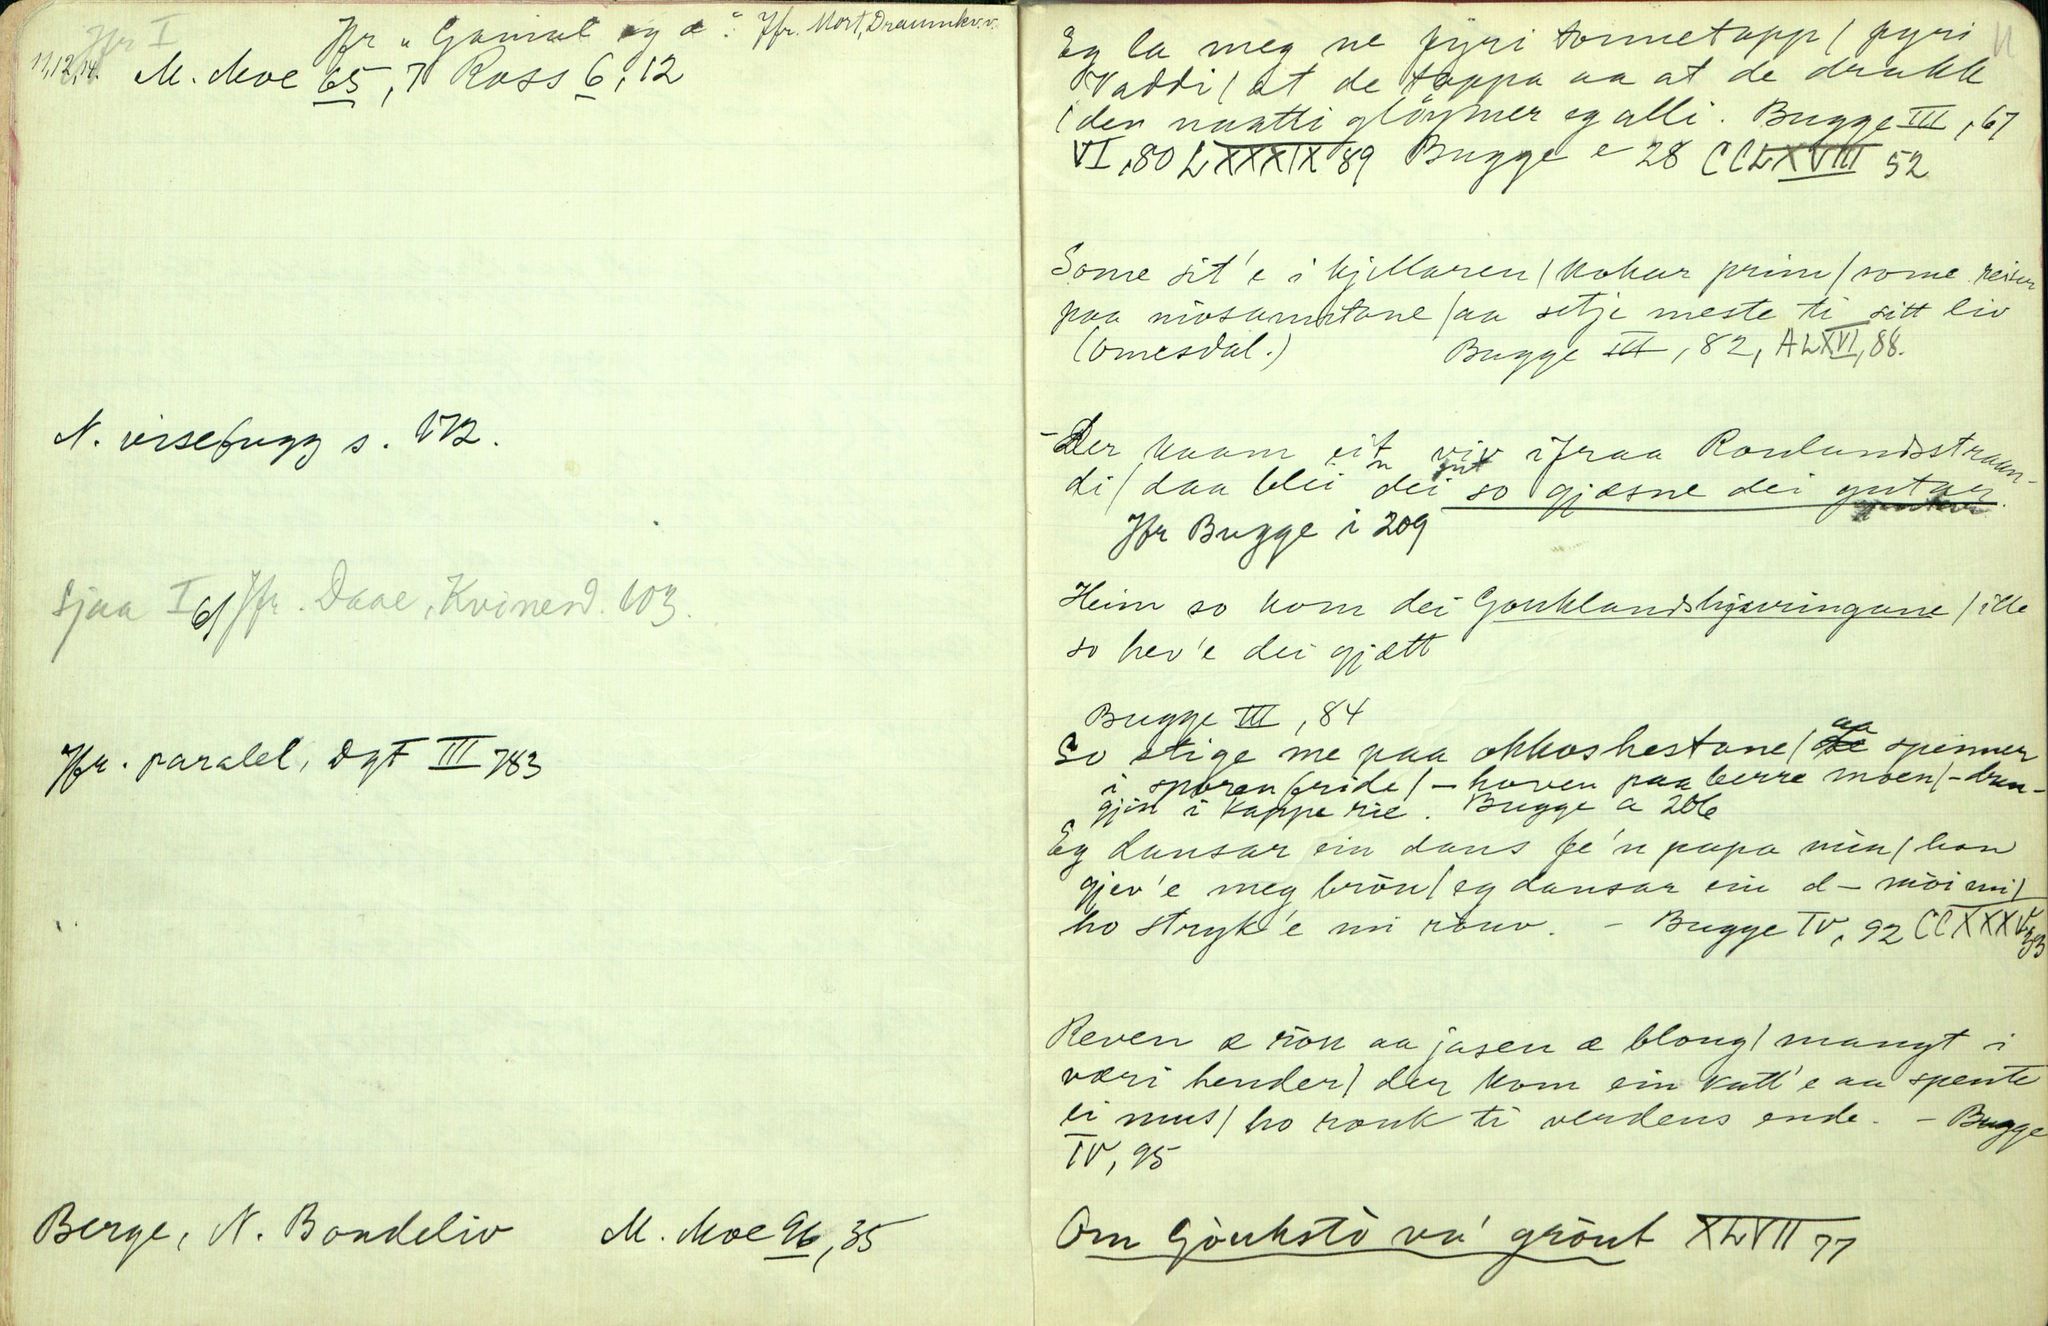 Jfr I
Jfr „Gamal og æ“ Jfr. Mort, Draumkv.v.
11,12,14. M. Moe 65, 7 Ross 6, 12
N. visebugg s. 172.
Sjaa I 61 Jfr. Daae, Kvinesd. 103.
Jfr. paralel, DgF III 783
Berge, N. Bondeliv M. Moe 96, 35
Eg la meg ne fyri tonnetapp / fyri
Vaddi / at de tappa aa at de drakk
i den naatti gløymer eg alli. Bugge III, 67
VI, 80 LXXXIX 89 Bugge e 28 CCLXVIII 52
Some sit'e i kjellaren / kokar prim / some reiser
paa / aa setje meste ti sitt liv
(Omesdal.) Bugge III, 82, ALXVI, 88.
- Der kaam eit viv ifraa Roulandsstraan-
di / daa blei dei so gjæsne dei gutar.
Jfr Bugge i 209
Heim so kom dei / ille
so hev'e dei gjætt
Bugge III, 84
So stige me paa okkos hestane / aa spenner
i sporen fride / - hoven paa berre moen / - dren-
gjin i kappe rie. Bugge a 206
Eg dansar ein dans fe'n papa min / han
gjev'e meg brön / eg dansar ein d - möi mi /
ho stryk'e mi rouv. - Bugge IV, 92 CCXXXV, 33
Reven æ rön aa jasen æ blong / mangt i
væri hender / der kom ein katt'e aa spente
ei mus / ho rouk ti verdens ende. - Bugge
IV, 95
Om Gøukstö va' grönt XLVII 77